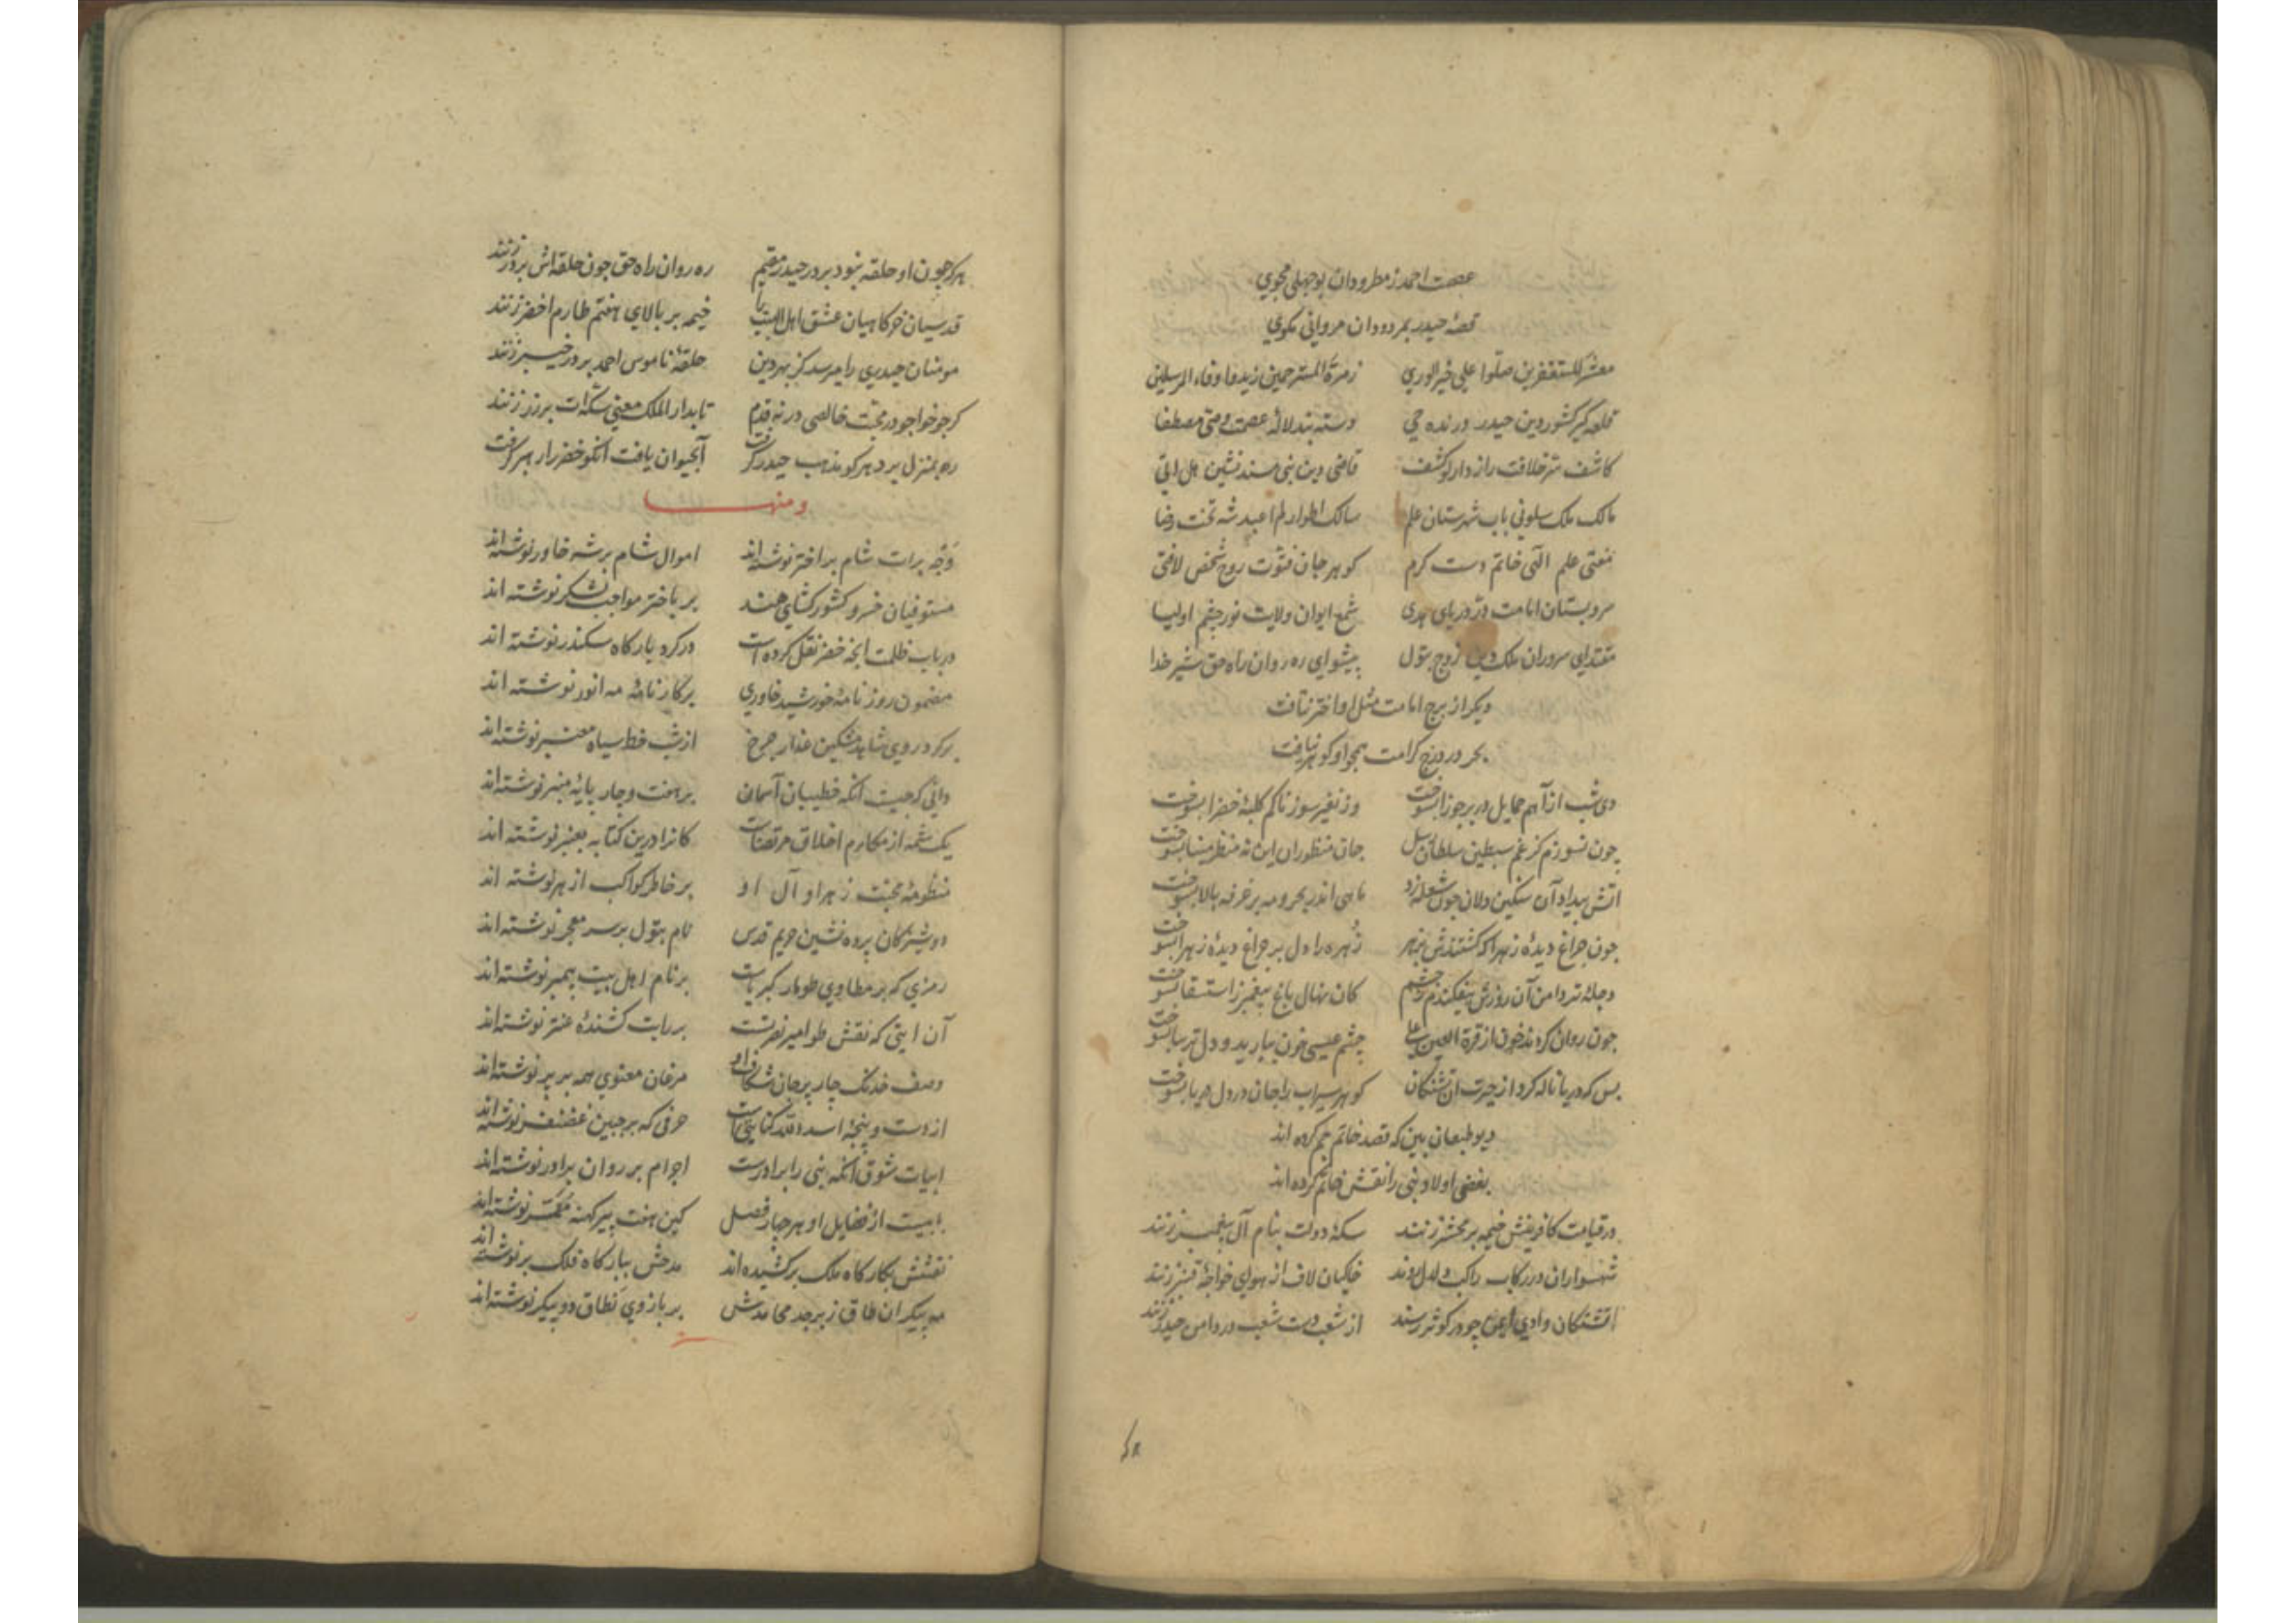 عصمت احمد ز مطرودان بوجهلی مجوی
قصهٔ حیدر بمردودان مروانی مکوی
معشر المستغفرین صلوا علی خیر الوری زمرة المسترحمین زیدوا وفاء المرسلین
قلعه گیر کشور دین حیدر درنده حی دسته بند لالهٔ عصمت وصی مصطفا
کاشف سر خلافت راز دار لو کشف قاضی دین نبی مسند نشین هل اتی
مالک ملک سلونی باب شهرستان علم سالک اطوار لم اعبد شه تخت رضا
مفتی علم الهی خاتم دست کرم کوهر جان فتوت روح شخص لافتی
سرو بستان امامت در دریای هدی شمع ایوان ولایت نور چشم اولیا
مقتدای سروران ملک دین زوج بتول پیشوای ره روان راه حق شیر خدا
دیکر از برج امامت مثل او اختر نتافت
بحر در درج کرامت همجو او کوهر نیافت
دی شب از آهم حمایل در بر جوزا بسوخت وز نفیر سوزناکم کلبهٔ خضرا بسوخت
جون نسوزم کز غم سبطین سلطان رسل جان منظوران این نه منظر مینا بسوخت
اتش بیداد آن سنکین دلان جون شعله زد ماهی اندر بحر و مه بر غرفه بالا بسوخت
جون جراغ دیدهٔ زهرا که کشتندش بزهر زهره را دل بر جراغ دیدهٔ زهرا بسوخت
دجله تر دامن آن روزش بیفکندم ز چشم کان نهال باغ پیغمبر ز استسقا بسوخت
جون روان کردند خون از قرة العین علی چشم عیسی خون ببارید و دل ترسا بسوخت
بس که دریا ناله کرد از حیرت ان تشنکان کوهر سیراب را جان در دل دریا بسوخت
دیو طبعان بین که قصد خاتم جم کرده اند
بغض اولاد نبی را نقش خاتم کرده اند
در قیامت کافرینش خیمه بر محشر زنند سکهٔ دولت بنام آل پیغمبر زنند
شهسواران در رکاب راکب دلدل روند خاکیان لاف از هوای خواجهٔ قنبر زنند
تشنکان وادی ایمن چو در کوثر رسند از شعف دست شعب در دامن حیدر زنند
هر که جون او حلقه نبود بر در حیدر مقیم ره روان راه حق جون حلقه اش بر در زنند
قدسیان خرکاهیان عشق اهل البیت را خیمه بر بالای هفتم طارم اخضر زنند
مومنان حیدری را میرسد کز بهر دین حلقهٔ ناموس احمد بر در خیبر زنند
کر جو خواجو در محبت خالصی در نه قدم تا بدار الملک معنی سکه ات بر زر زنند
ره بمنزل برد هر کو مذهب حیدر گرفت آبحیوان یافت آنکو خضر را رهبر گرفت
ومنها
وجه برات شام بر اختر نوشته اند اموال شام بر شه خاور نوشته اند
مستوفیان خسرو کشور کشای هند بر باختر مواجب لشکر نوشته اند
در باب ظلمت انجه خضر نقل کرده است در کرد بارکاه سکندر نوشته اند
مضمون روزنامهٔ خورشید خاوری بر کارنامهٔ مه انور نوشته اند
بر کرد روی شاهد مشکین عذار چرخ از شب خط سیاه معنبر نوشته اند
دانی که جیست آنکه خطیبان آسمان بر هفت و چار پایهٔ منبر نوشته اند
یک شمه از مکارم اخلاق مرتضاست کانرا درین کتابه بعنبر نوشته اند
منظومهٔ محبت زهرا و آل او بر خاطر کواکب ازهر نوشته اند
دوشیزکان پرده نشین حریم قدس نام بتول بر سر معجر نوشته اند
رمزی که بر مطاوی طومار کبریاست بر نام اهل بیت پیمبر نوشته اند
آن ایتی که نقش طوامیر نصرتست بر رایت کشندهٔ عنتر نوشته اند
وصف خدنک چار پر جان شکاف او مرغان معنوی همه بر پر نوشته اند
از دست و پنجهٔ اسد الله کنایتی است حرفی که بر جبین غضنفر نوشته اند
ابیات شوق آنکه نبی را برادرست اجرام بر روان برادر نوشته اند
بابیست از فضایل او هر چهار فصل کین هفت پیر کهنه معمر نوشته اند
نقشش بکارکاه ملک بر کشیده اند مدحش ببارکاه فلک بر نوشته اند
مه پیکران طاق زبرجد محامدش بر بازوی نطاق دو پیکر نوشته اند